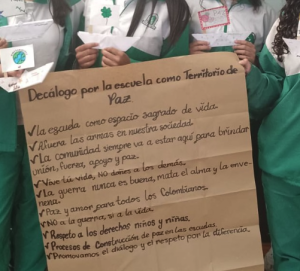 Decálogo por la escuela como Territorio de
Paz
✓ La escuela como espacio sagrado de vida
✓ ¡Fuera las armas en nuestra sociedad.
✓ La comunidad siempre va a estar aquí para brindar
unión, fuerza, apoyo y paz.
✓ Viva la vida, NO daños a los demás.
✓ La guerra nunca es buena, mata el alma y la enve-
nena.
✓ Paz y amor para todos los Colombianos.
✓ NO a la guerra, si a la vida.
✓ Respeto a los derechos niños y niñas
✓ Procesos de Construcción de paz en las escuelas
✓ Promovemos el diálogo y el respeto por la diferencia.